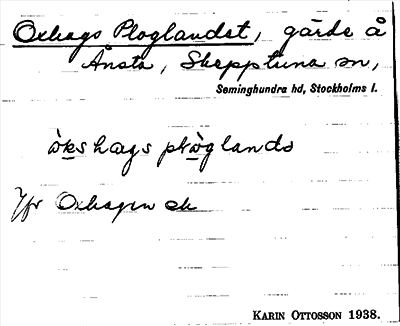 Oxhags Ploglandet, gärde å
Ånsta, Skepptuna sn,
Seminghundra hd, Stockholms l.
òkshags plòglands
Jfr Oxhagen ck
KARIN OTTOSSON 1938.